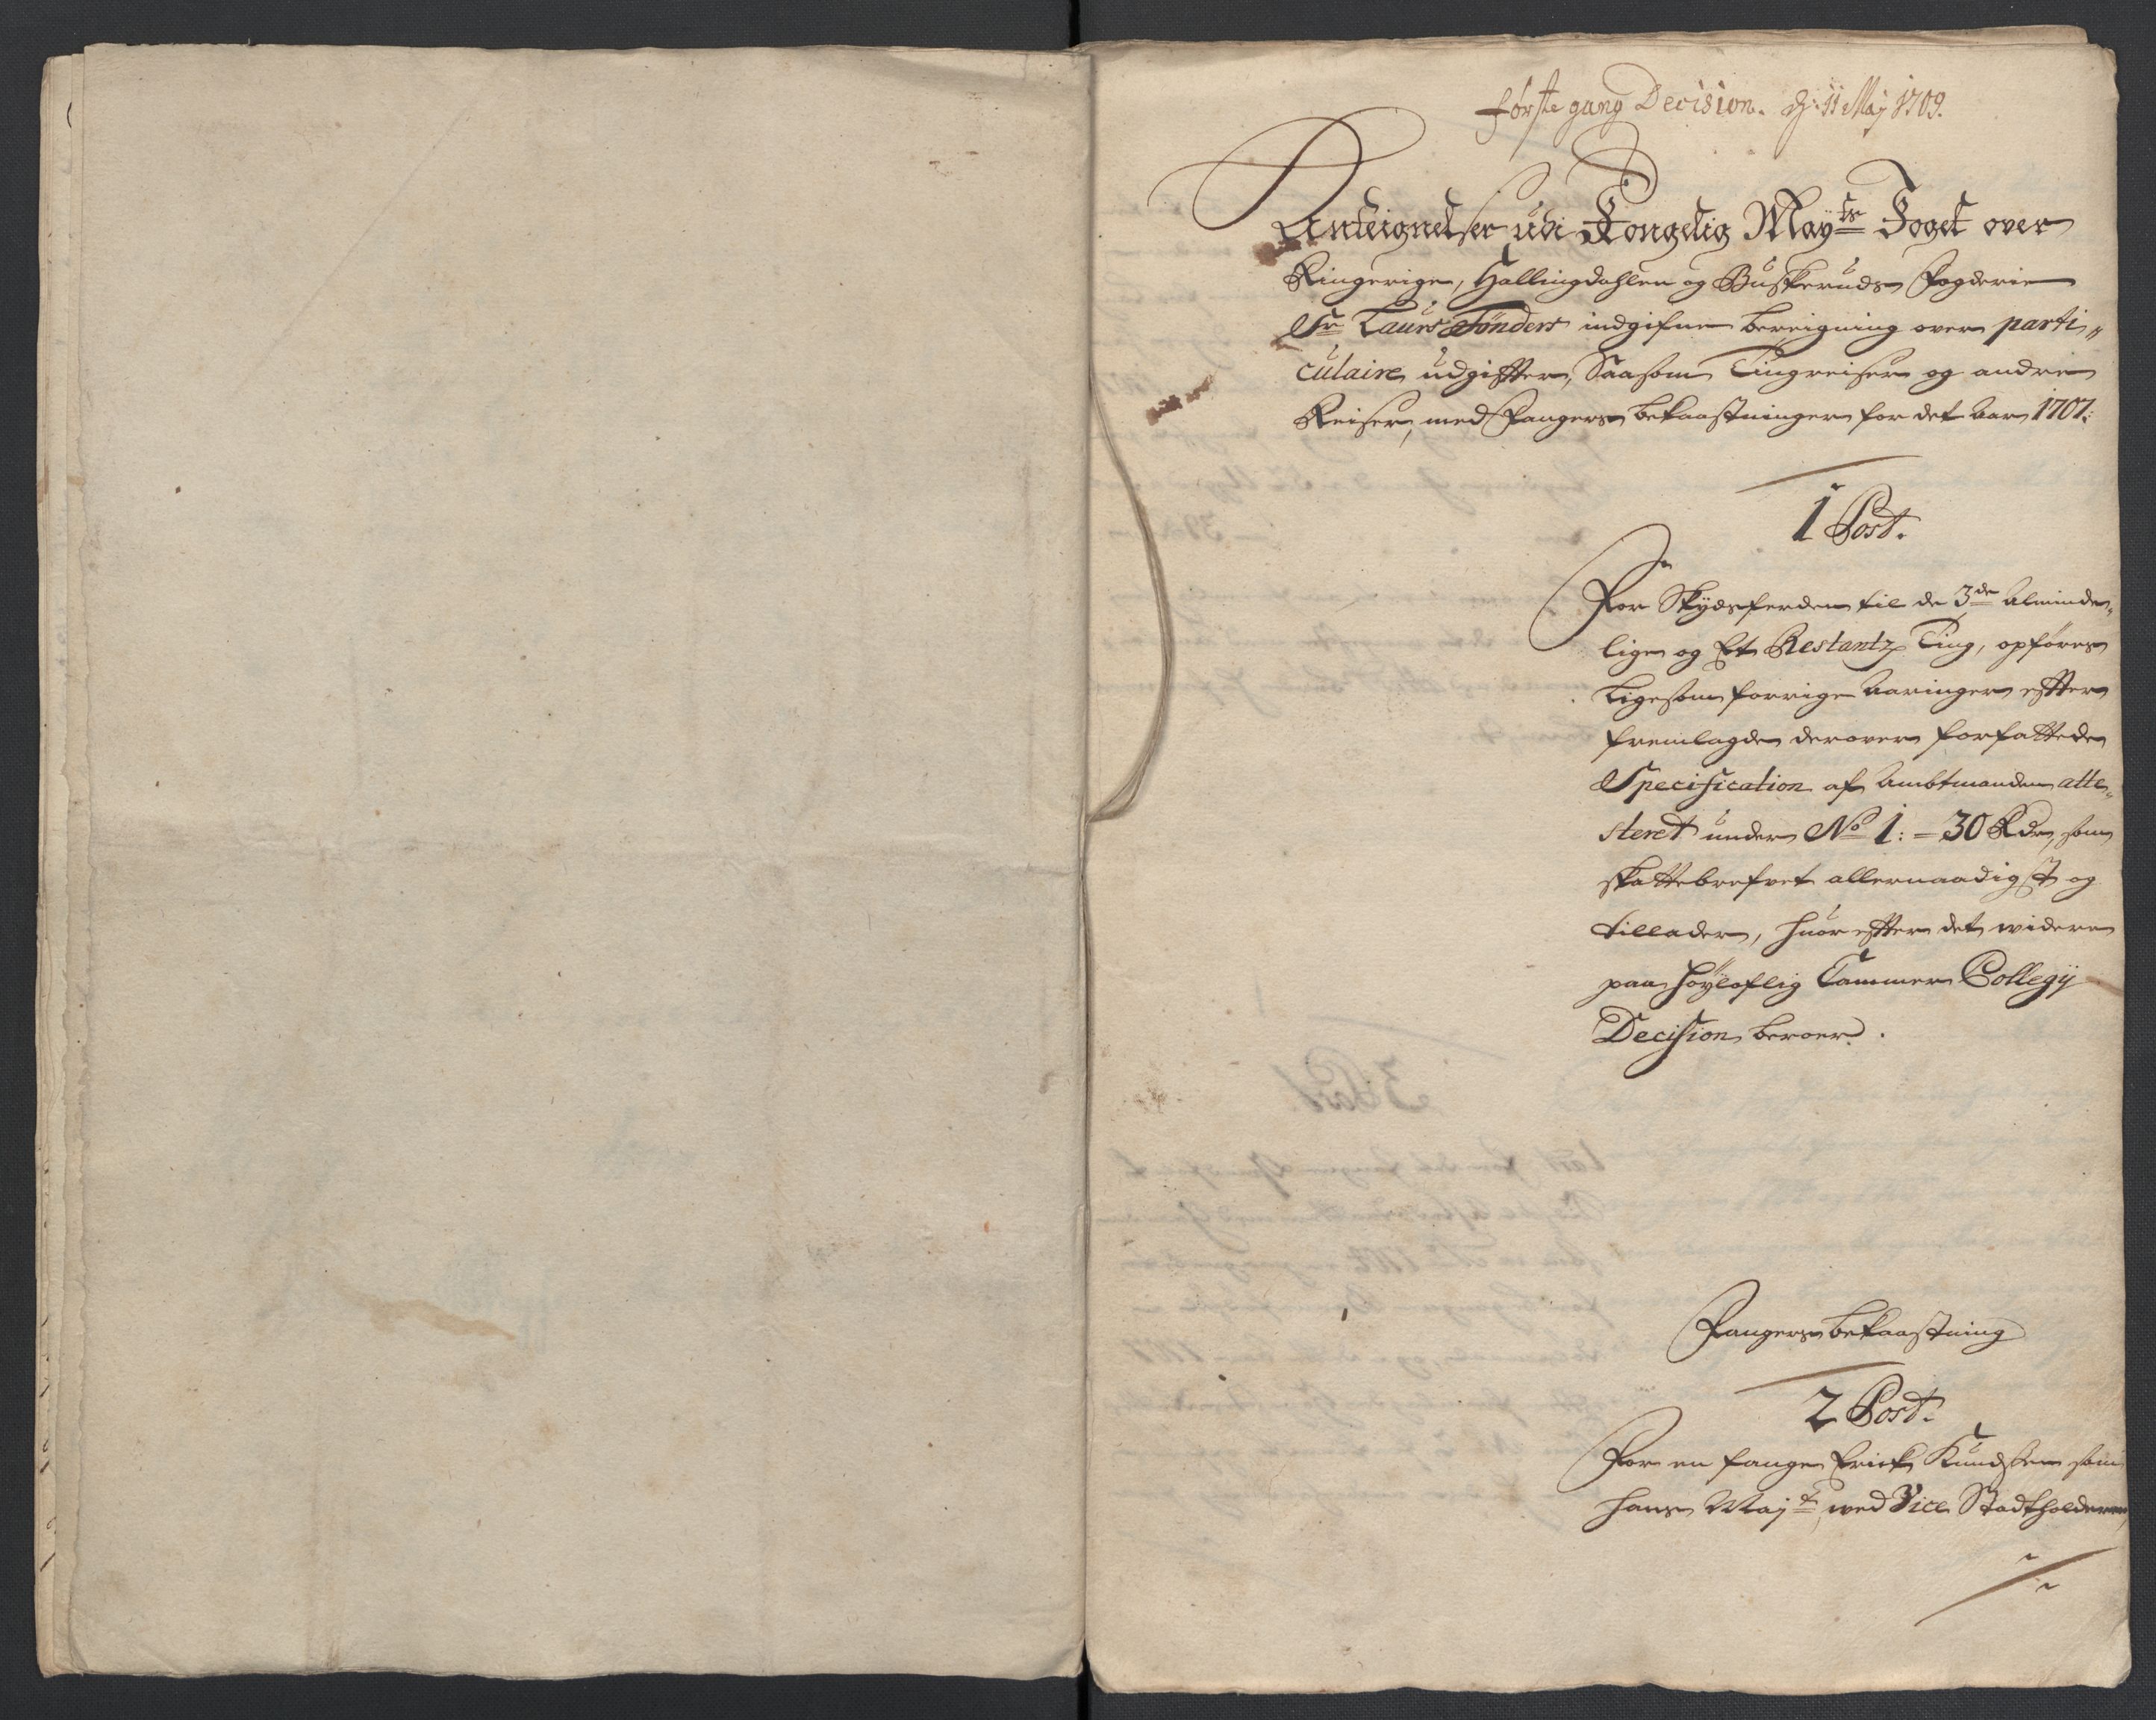 første gang Decision. d: 11 Maj 1709.
Anteignelser udi Kongelig Mayts Foget over
Ringerige, Hallingdahlen og Buskeruds Fogderie
Sr Laurs Tønders indgifne bereigning over parti„
culaire udgifter, Saasom Tingreiser og andre
Reiser, med Fangers bekaastninger for det Aar 1707:
1 Post.
For Skydsferden til de 3de Alminde„
lige og Et Restantz Ting, opføres
ligesom forrige Aaringer efter
fremlagde derover forfattede
Specification af Ambtmanden atte„
steret under No 1: - 30 Rdr, som
skattebrefvet allernaadigst og
tillader, huorefter det widere
paa høyloflig Cammer Collegij
Decision beroer.
Fangers bekaastning
2 Post.
For en fange Erick Knudsen som
hans Majt, wed Vice Stadtholderen,